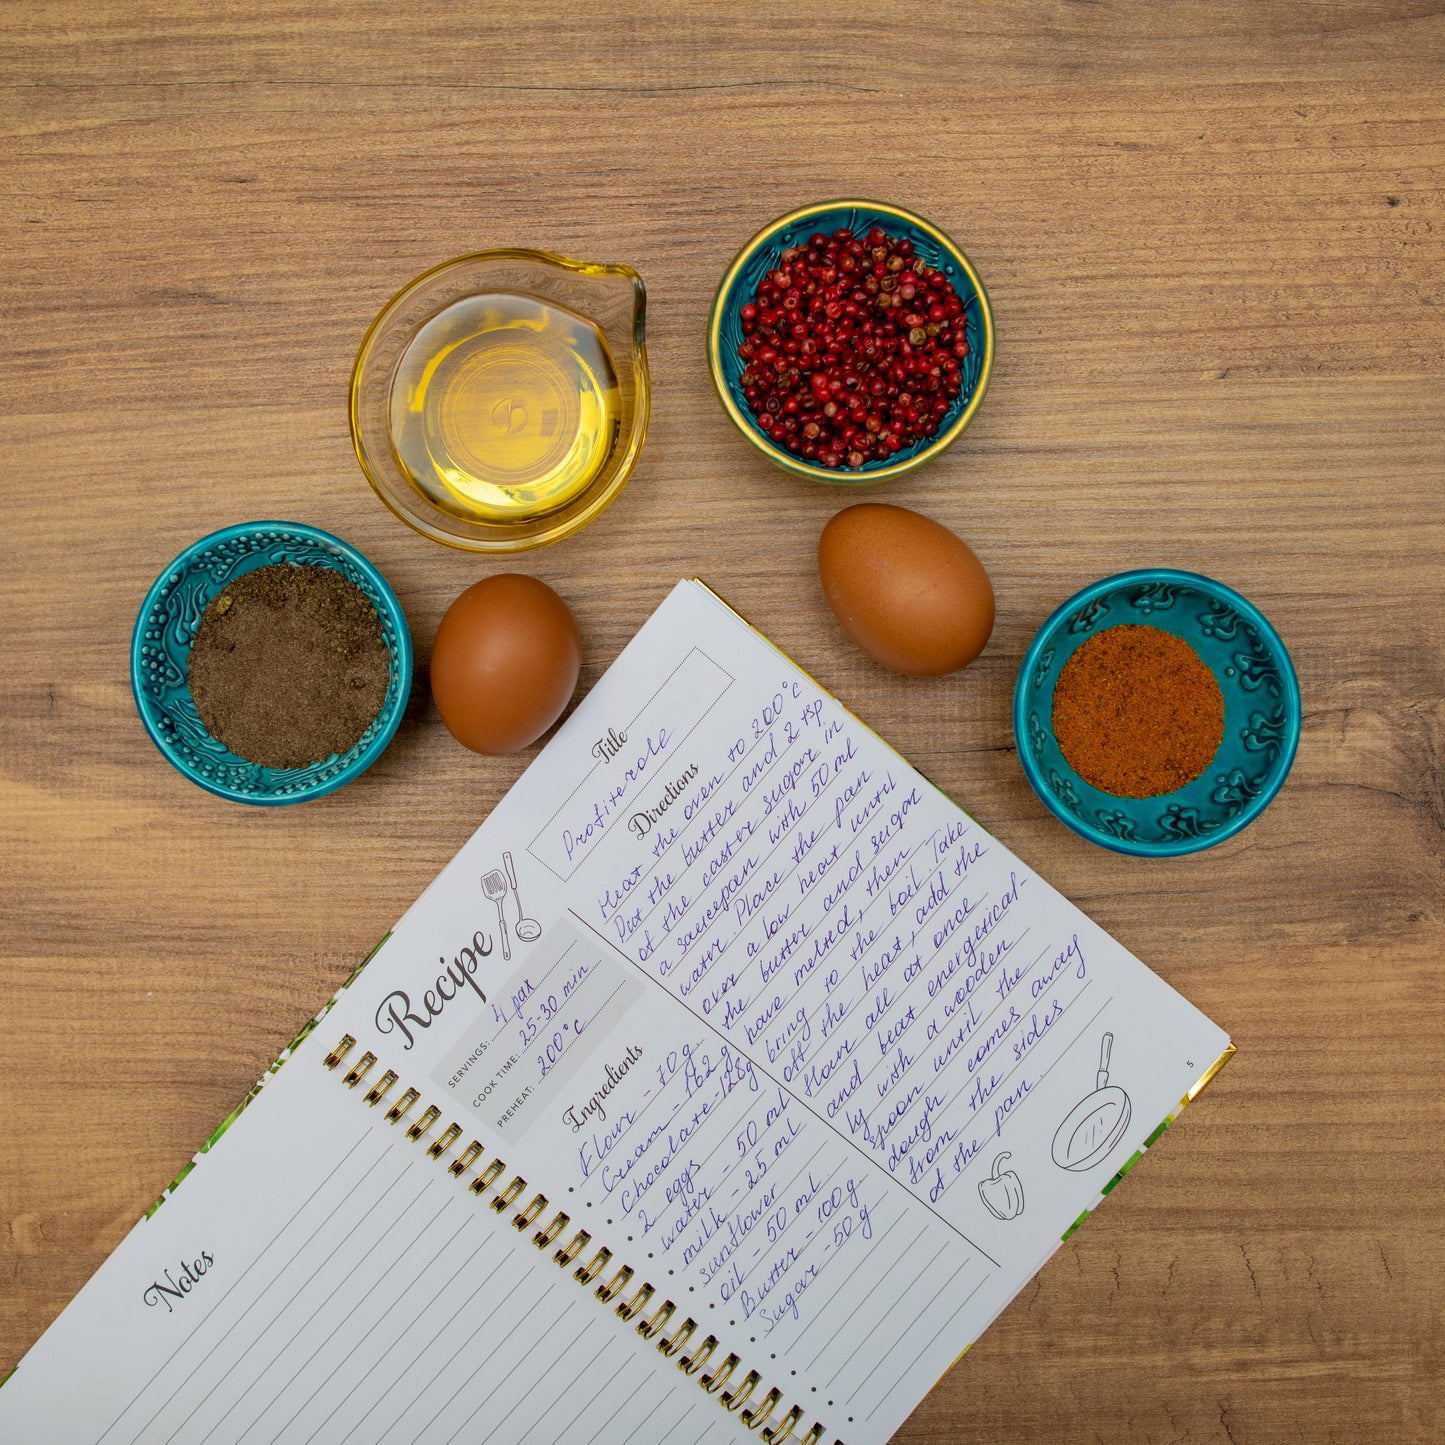 Recipe
SERVINGS: 4 pax
COOK TIME: 25-30 min
PREHEAT: 200°C
Title
Profiterole
Ingredients
Flour - 70 g
Cream - 162 g
Chocolate - 128g
2 eggs
water - 50 ml
milk - 25 ml
sunflower
oil - 50 ml
Butter - 100 g
Sugar - 50 g
Directions
Heat the oven to 200°C
Put the butter and 2 tsp
of the caster sugar in
a saucepan with 50 ml
water. Place the pan
over a low heat until
the butter and sugar
have melted, then
bring to the boil. Take
off the heat, add the
flour all at once
and beat energetical-
ly with a wooden
spoon until the
dough comes away
from the sides
of the pan.
5
Notes